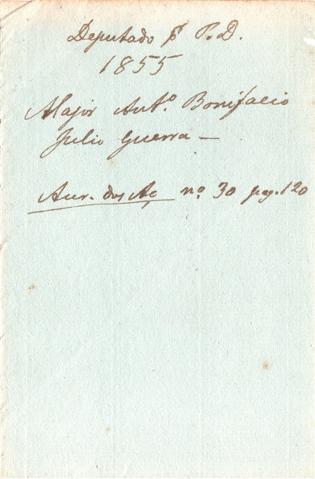 Deputado p P. D.
1855
Major Ant.º Bonifacio
Julio Guerra —
Aur. dos Aç nº 30 pag. 120